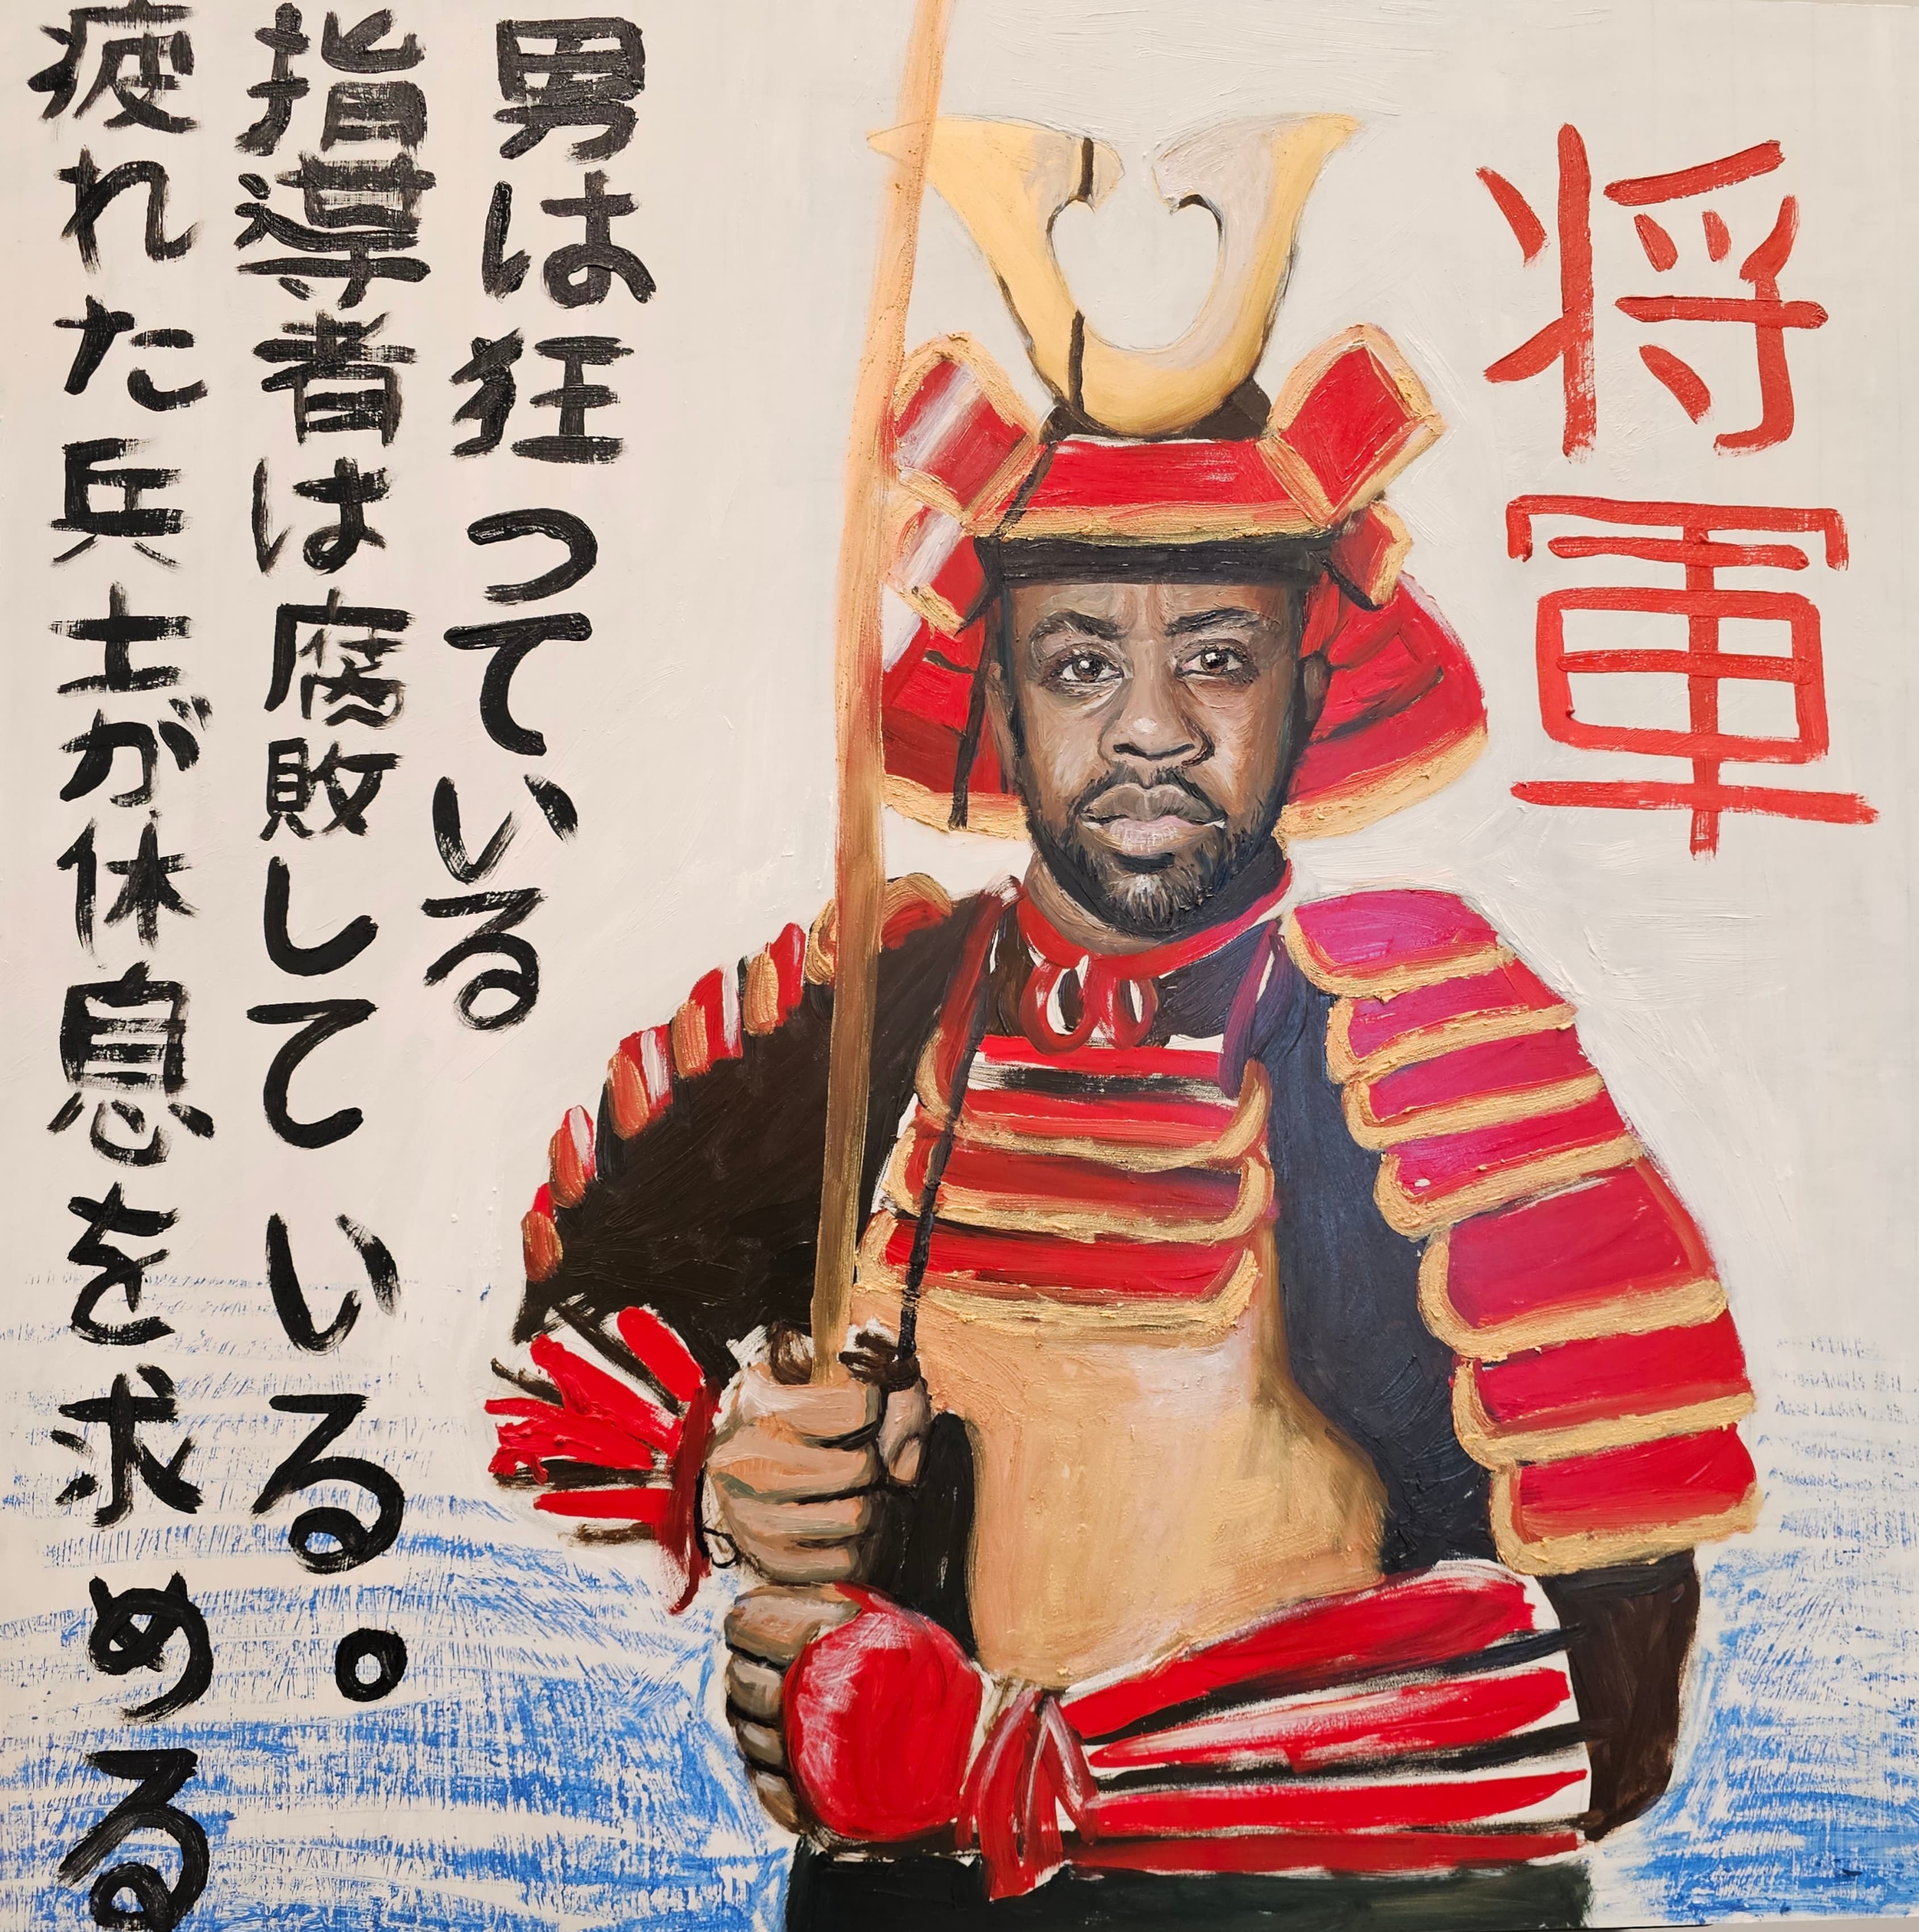 将軍
男は狂っている
指導者は腐敗している。
疲れた兵士が休息を求める